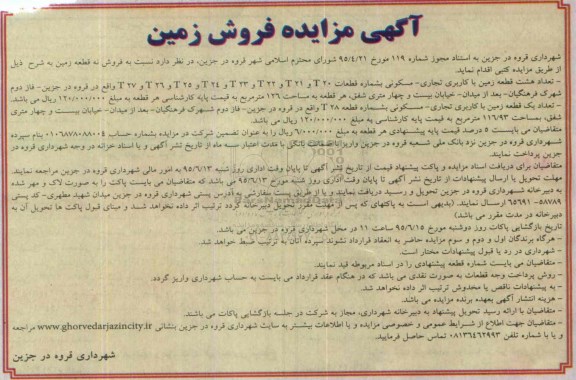 آگهی مزایده فروش زمین
شهرداری قروه در جزین به استناد مجوز شماره ۱۱۹ مورخ ۹۵/۴/۲۱ شورای محترم اسلامی شهر قروه در جزین، در نظر دارد نسبت به فروش نه قطعه زمین به شرح ذیل
از طریق مزایده کتبی اقدام نماید.
- تعداد هشت قطعه زمین با کاربری تجاری- مسکونی بشماره قطعات T ۲۰ و T ۲۱ و T ۲۲ و T ۲۳ و T ۲۴ و T ۲۵ و T ۲۶ و T ۲۷ واقع در قروه در جزین- فاز دوم
شهرک فرهنگیان- بعد از میدان- خیابان بیست و چهار متری شفق، هر قطعه به مساحت ۱۲۶ مترمربع به قیمت پایه کارشناسی هر قطعه به مبلغ ۱۲۰/۰۰۰/۰۰۰ ریال می باشد.
- تعداد یک قطعه زمین با کاربری تجاری- مسکونی بشماره قطعه T ۲۸ واقع در قروه در جزین- فاز دوم شهرک فرهنگیان- بعد از میدان- خیابان بیست و چهار متری
شفق، بمساحت ۱۱۶/۹۳ مترمربع به قیمت پایه کارشناسی به مبلغ ۱۲۰/۰۰۰/۰۰۰ ریال می باشد.
متقاضیان می بایست ۵ درصد قیمت پایه پیشنهادی هر قطعه به مبلغ ۶/۰۰۰/۰۰۰ ریال را به عنوان تضمین شرکت در مزایده بشماره حساب ۰۱۰۶۸۷۸۰۸۸۰۰۴ بنام سپرده
شهرداری قروه در جزین نزد بانک ملی شعبه قروه در جزین واریز یا ضمانت بانکی با مدت اعتبار سه ماه از تاریخ نشر آگهی و یا اسناد خزانه در وجه شهرداری قروه در
جزین پرداخت نمایند.
متقاضیان برای دریافت اسناد مزایده و پاکت پیشنهاد قیمت از تاریخ نشر آگهی تا پایان وقت اداری روز شنبه ۹۵/۶/۱۳ به امور مالی شهرداری قروه در جزین مراجعه نمایند.
مهلت تحویل یا ارسال پیشنهادات از تاریخ نشر آگهی تا پایان وقت اداری روز شنبه مورخ ۹۵/۶/۱۳ می باشد که متقاضیان می بایست پاکت را به صورت لاک و مهر شده
به دبیرخانه شهرداری قروه در جزین تحویل و رسید دریافت نمایند و یا از طریق پست سفارشی به آدرس پستی شهرداری قروه در جزین میدان شهید مطهری- کد پستی
۵۸۷۸۹- ۶۵۶۹۱ ارسال نمایند. (بدیهی است به پاکتهای که پس از مهلت مقرر تحویل دبیرخانه گردد ترتیب اثر داده نخواهد شد و مبنای قبول پاکت ها تحویل آن به
دبیرخانه در مدت مقرر می باشد)
تاریخ بازگشایی پاکات روز دوشنبه مورخ ۹۵/۶/۱۵ ساعت ۱۱ در محل شهرداری قروه در جزین می باشد.
- هرگاه برندگان اول و دوم و سوم مزایده حاضر به انعقاد قرارداد نشوند سپرده آنان به ترتیب ضبط خواهد شد.
- شهرداری در رد یا قبول پیشنهادات مختار است.
- متقاضیان می بایست شماره قطعه پیشنهادی را در اسناد مربوطه قید نمایند.
- روش پرداخت وجه قطعات به صورت نقدی می باشد که در هنگام عقد قرارداد می بایست به حساب شهرداری واریز گردد.
- به پیشنهادات ناقص یا مخدوش ترتیب اثر داده نخواهد شد.
- هزینه انتشار آگهی بعهده برنده مزایده می باشد.
- متقاضیان با ارائه رسید تحویل پیشنهاد به دبیرخانه شهرداری، مجاز به شرکت در جلسه بازگشایی پاکات می باشند.
- متقاضیان جهت اطلاع از شرایط عمومی و خصوصی مزایده و یا اطلاعات بیشتر به سایت شهرداری قروه در جزین بنشانی www.ghorvedarjazincity.ir مراجعه
و یا با شماره تلفن ۰۸۱۳۶۴۶۲۹۹۳ تماس حاصل فرمایید.
شهرداری قروه در جزین